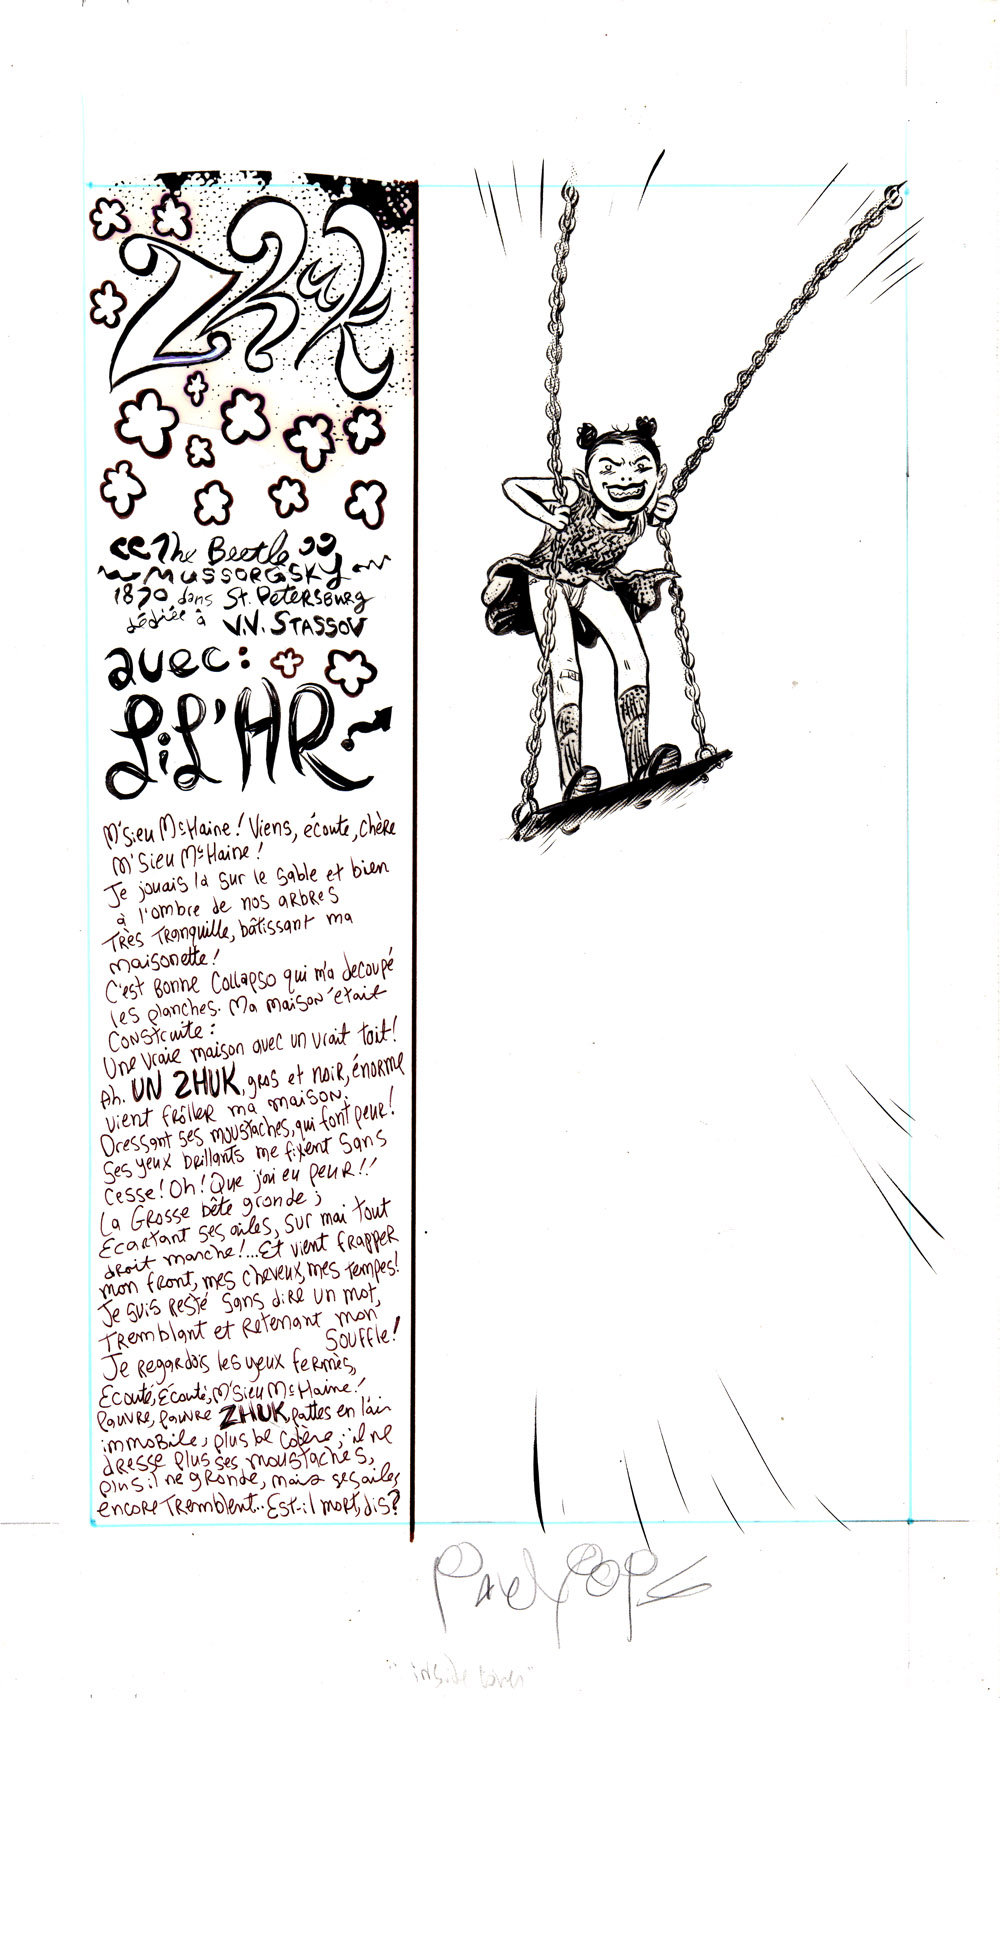 Zhuk
"The Beetle"
MUSSORGSKY
1870 dans St. Petersburg
dédiée à V.V. STASSOV
avec:
LiL'HR.
M'sieu McHaine! Viens, écoute, chère
M'sieu McHaine!
Je jouais là sur le sable et bien
à l'ombre de nos arbres
Très Tranquille, bâtissant ma
maisonette!
C'est Bonne Collapso qui m'a decoupé
les planches. Ma maison était
Construite:
Une vraie maison avec un vrait toit!
Ah. UN ZHUK, gros et noir, énorme
vient frôller ma maison.
Dressant ses moustaches, qui font peur!
Ses yeux brillants me fixent sans
cesse! Oh! Que j'ai eu peur!!
La Grosse bête gronde;
Ecartant ses ailes, sur mai tout
droit marche!...Et vient frapper
mon front, mes cheveux, mes tempes!
Je suis resté sans dire un mot,
Tremblant et retenant mon
Souffle!
Je regardois les yeux fermès,
Ecouté, écouté, M'sieu McHaine!
Pauvre, pauvre ZHUK, pattes en l'air
immobile, plus de colère; il ne
dresse plus ses moustaches,
plus il ne gronde, mais ses ailes
encore tremblent.. Est-il mort, dis?
Paul Pope
"inside cover"